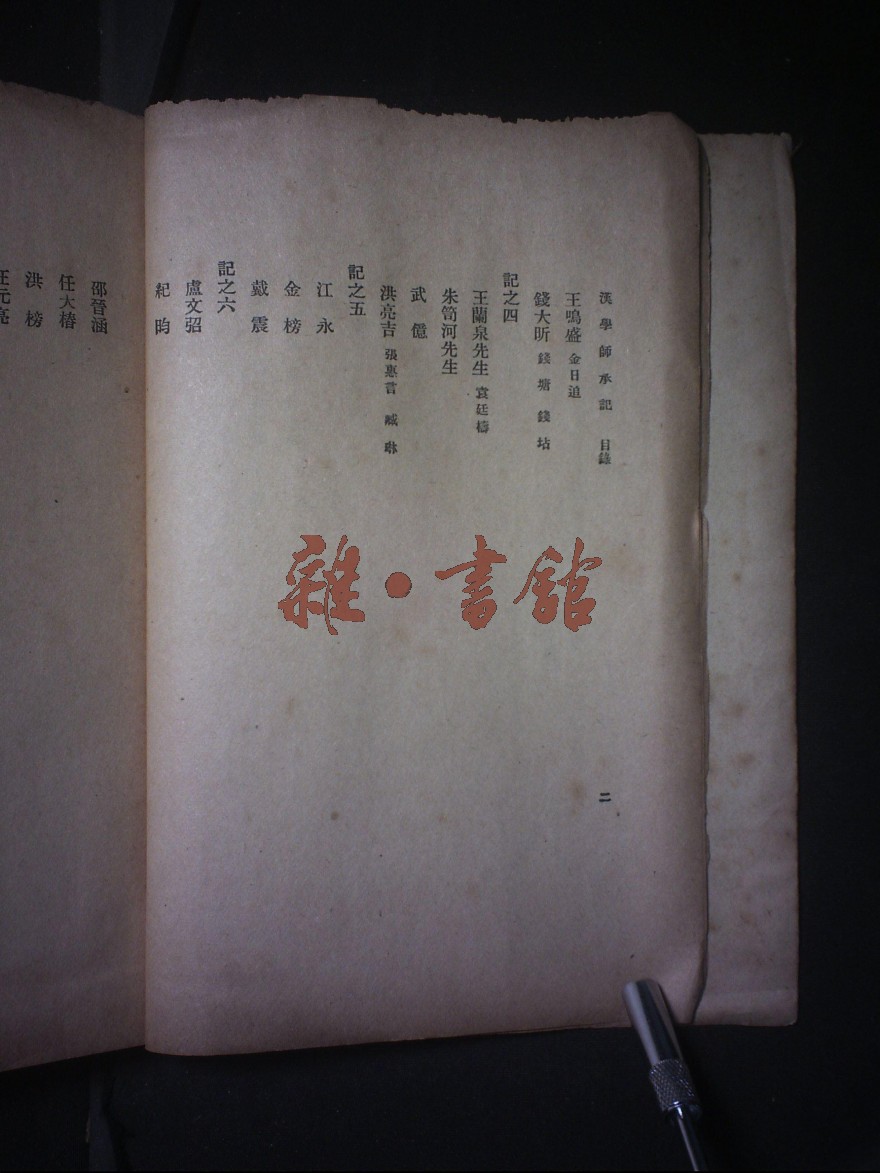 漢學師承記 目錄
王鳴盛 金日追
錢大昕 錢塘 錢坫
記之四
王蘭泉先生 袁廷檮
朱笥河先生
武億
洪亮吉 張惠言 臧琳
記之五
江永
金榜
戴震
記之六
盧文弨
紀昀
邵晉涵
任大椿
洪榜
汪元亮
二
雜·書館